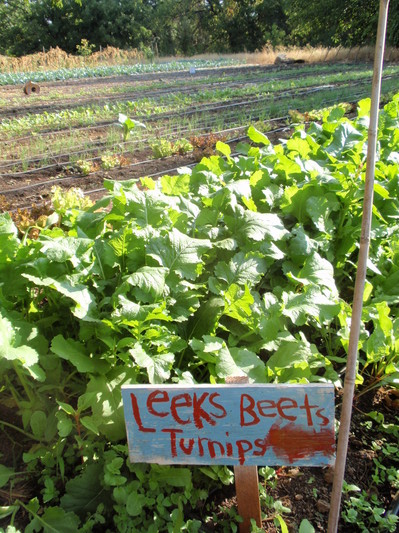 Leeks Beets
Turnips